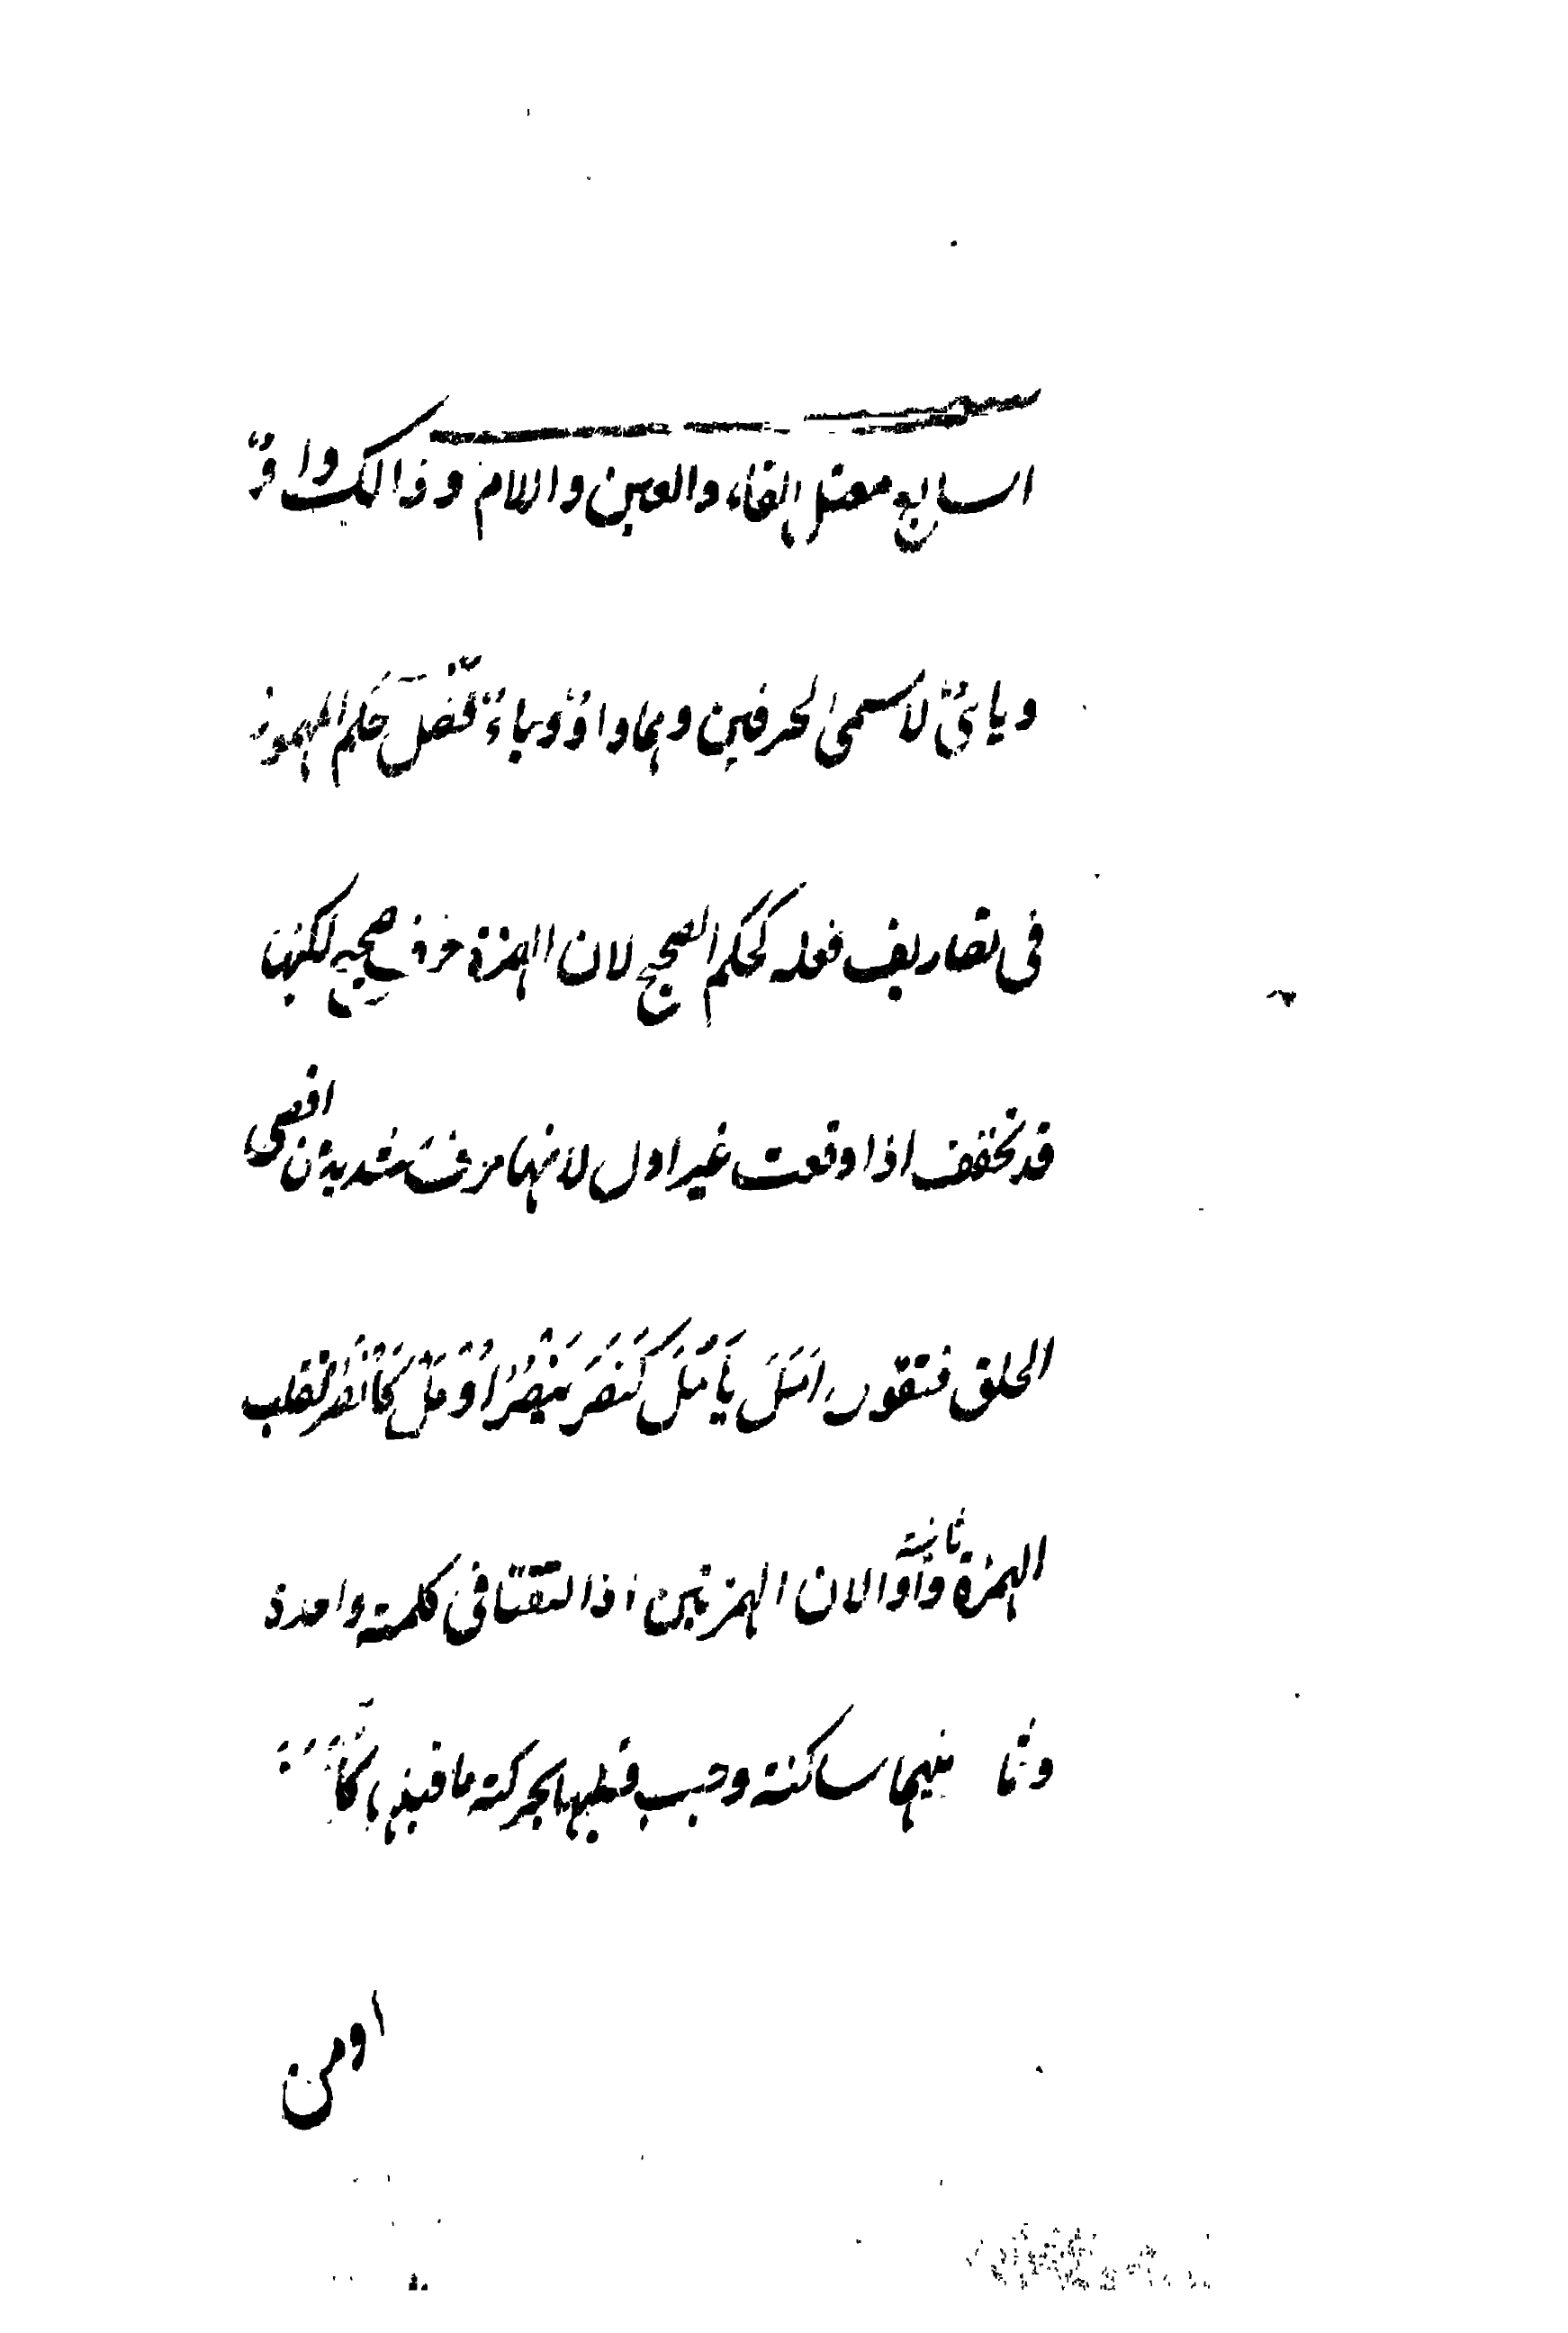 السابع معتل الفاء والعين والام وذالك واوٌ
ويائىٌ لاسمىٰ الحرفين وهما واوٌ وياءٌ فصل حكم المهموز
فى تصاريف فعله كحكم الصحيح لان الهمزة حرف صحيح لكنها
قد تخفف اذا وقعت غير اول لانها حرف شديد من اقصى
الحلق فتقول اَمَلَ يَأمُلُ كَنَصَرَ يَنْصُرُ اُوْمُلْ كَاُنْصُرْ تقلب
الهمزة ثانية واوًا لان الهمزتين اذا التقتا فى كلمة واحدة
وثا نيهما ساكنة وجب قلبها بحركة ما قبلها كَآمَنَ
اومن